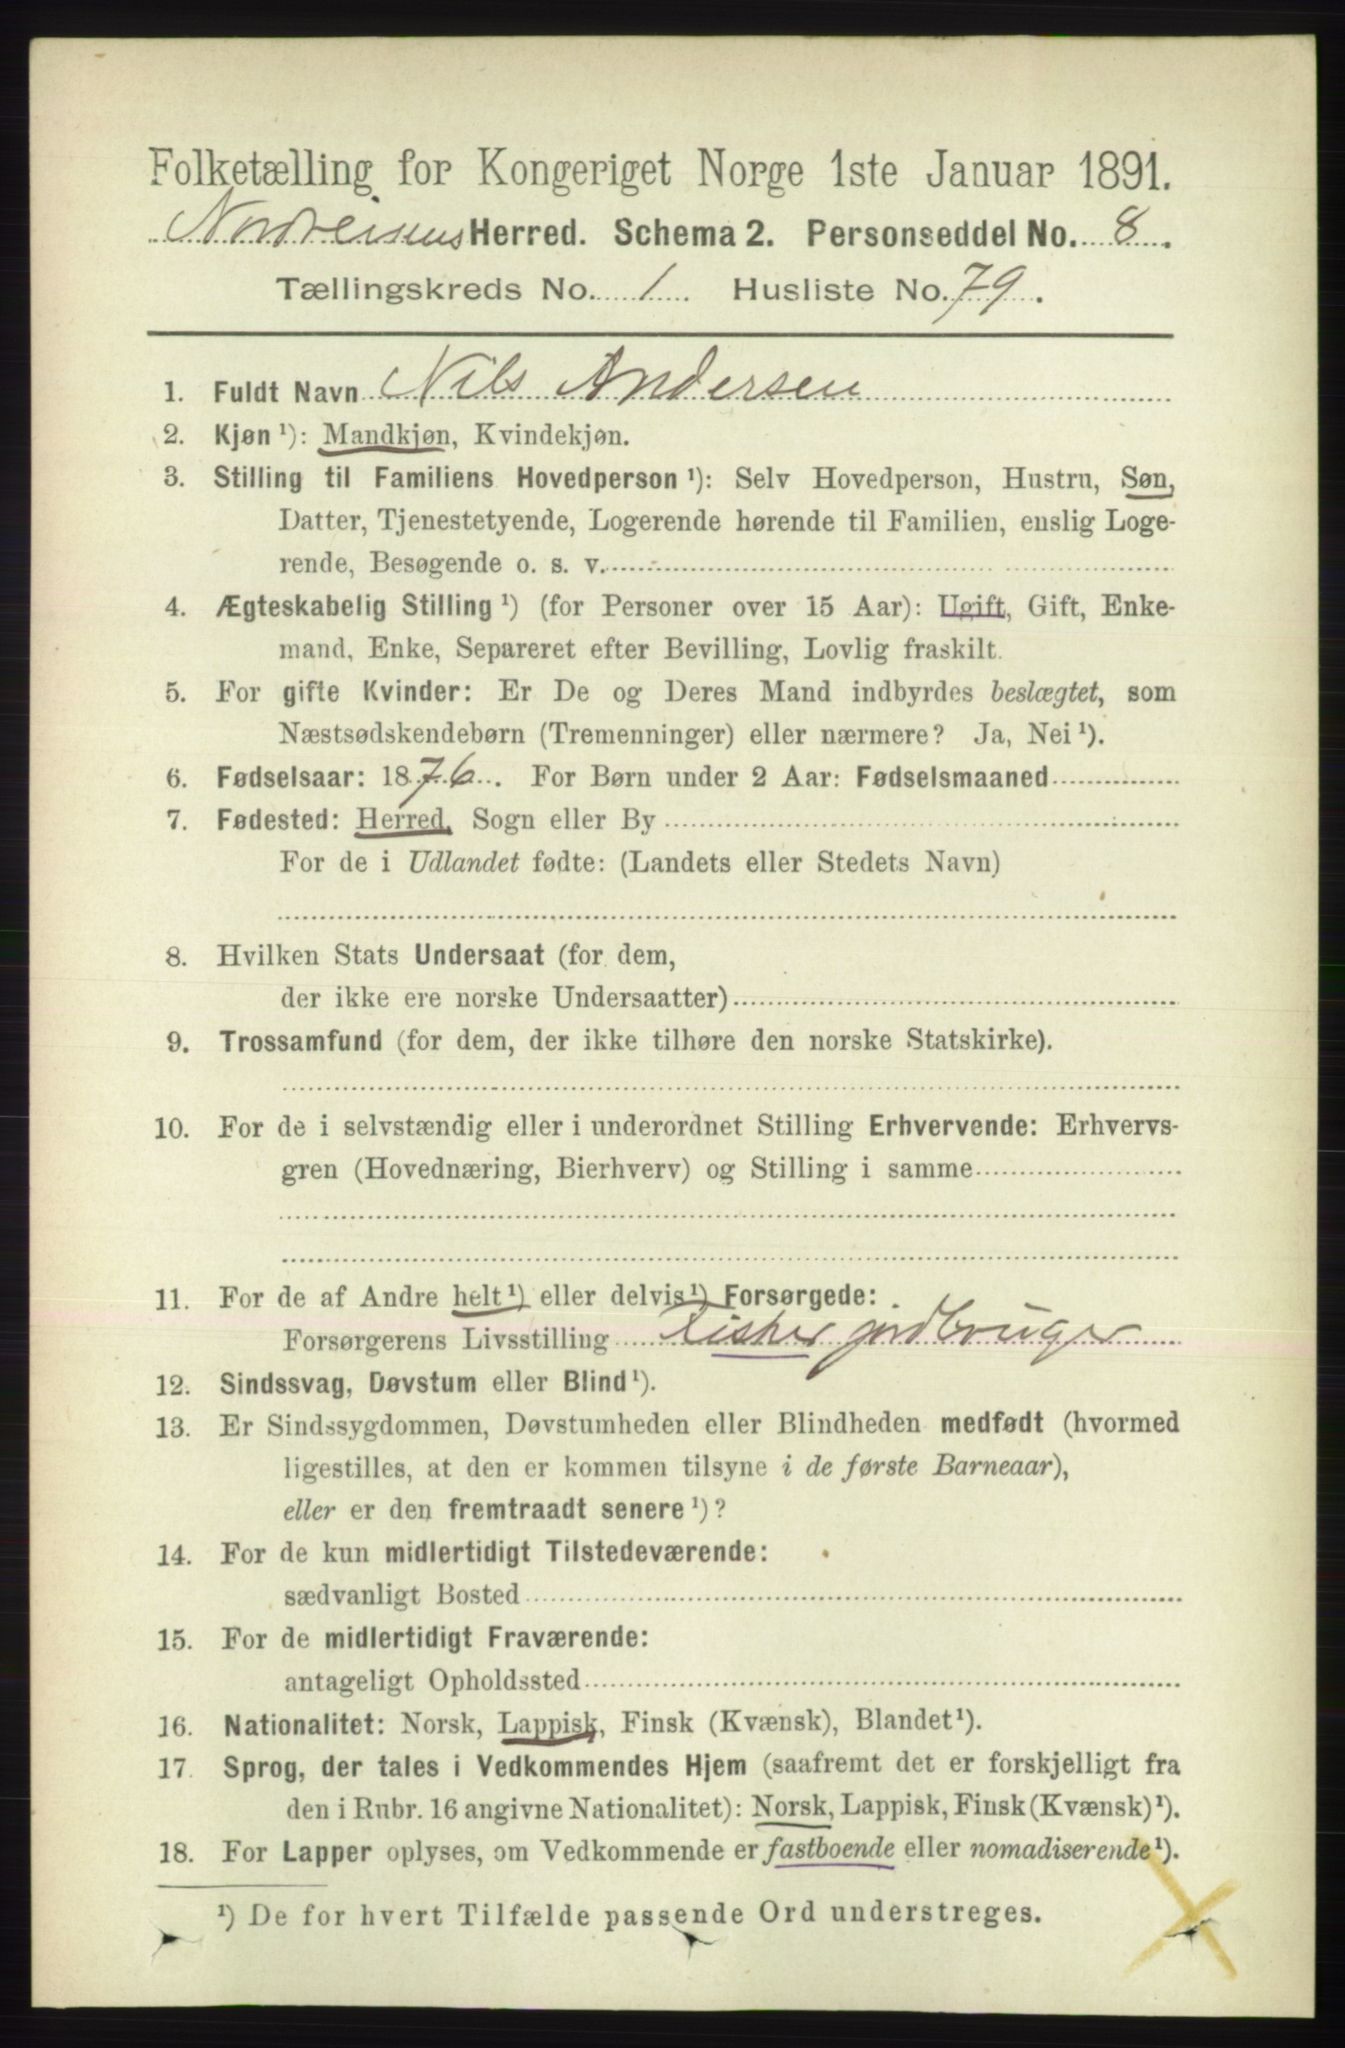 Folketælling for Kongeriget Norge 1ste Januar 1891.
Nordreisens Herred. Schema 2. Personseddel No. 8.
Tællingskreds No. 1. Husliste No. 79.
1. Fuldt Navn Nils Andersen
2. Kjøn ¹): Mandkjøn, Kvindekjøn.
3. Stilling til Familiens Hovedperson ¹): Selv Hovedperson, Hustru, Søn,
Datter, Tjenestetyende, Logerende hørende til Familien, enslig Loge-
rende, Besøgende o. s. v.
4. Ægteskabelig Stilling ¹) (for Personer over 15 Aar): Ugift, Gift, Enke-
mand, Enke, Separeret efter Bevilling, Lovlig fraskilt.
5. For gifte Kvinder: Er De og Deres Mand indbyrdes beslægtet, som
Næstsødskendebørn (Tremenninger) eller nærmere? Ja, Nei ¹).
6. Fødselsaar: 1876. For Børn under 2 Aar: Fødselsmaaned
7. Fødested: Herred, Sogn eller By
For de i Udlandet fødte: (Landets eller Stedets Navn)
8. Hvilken Stats Undersaat (for dem,
der ikke ere norske Undersaatter)
9. Trossamfund (for dem, der ikke tilhøre den norske Statskirke).
10. For de i selvstændig eller i underordnet Stilling Erhvervende: Erhvervs-
gren (Hovednæring, Bierhverv) og Stilling i samme
11. For de af Andre helt ¹) eller delvis ¹) Forsørgede:
Forsørgerens Livsstilling Fisker jordbruger
12. Sindssvag, Døvstum eller Blind ¹).
13. Er Sindssygdommen, Døvstumheden eller Blindheden medfødt (hvormed
ligestilles, at den er kommen tilsyne i de første Barneaar),
eller er den fremtraadt senere ¹)?
14. For de kun midlertidigt Tilstedeværende:
sædvanligt Bosted
15. For de midlertidigt Fraværende:
antageligt Opholdssted
16. Nationalitet: Norsk, Lappisk, Finsk (Kvænsk), Blandet ¹).
17. Sprog, der tales i Vedkommendes Hjem (saafremt det er forskjelligt fra
den i Rubr. 16 angivne Nationalitet): Norsk, Lappisk, Finsk (Kvænsk) ¹).
18. For Lapper oplyses, om Vedkommende er fastboende eller nomadiserende ¹).
¹) De for hvert Tilfælde passende Ord understreges.